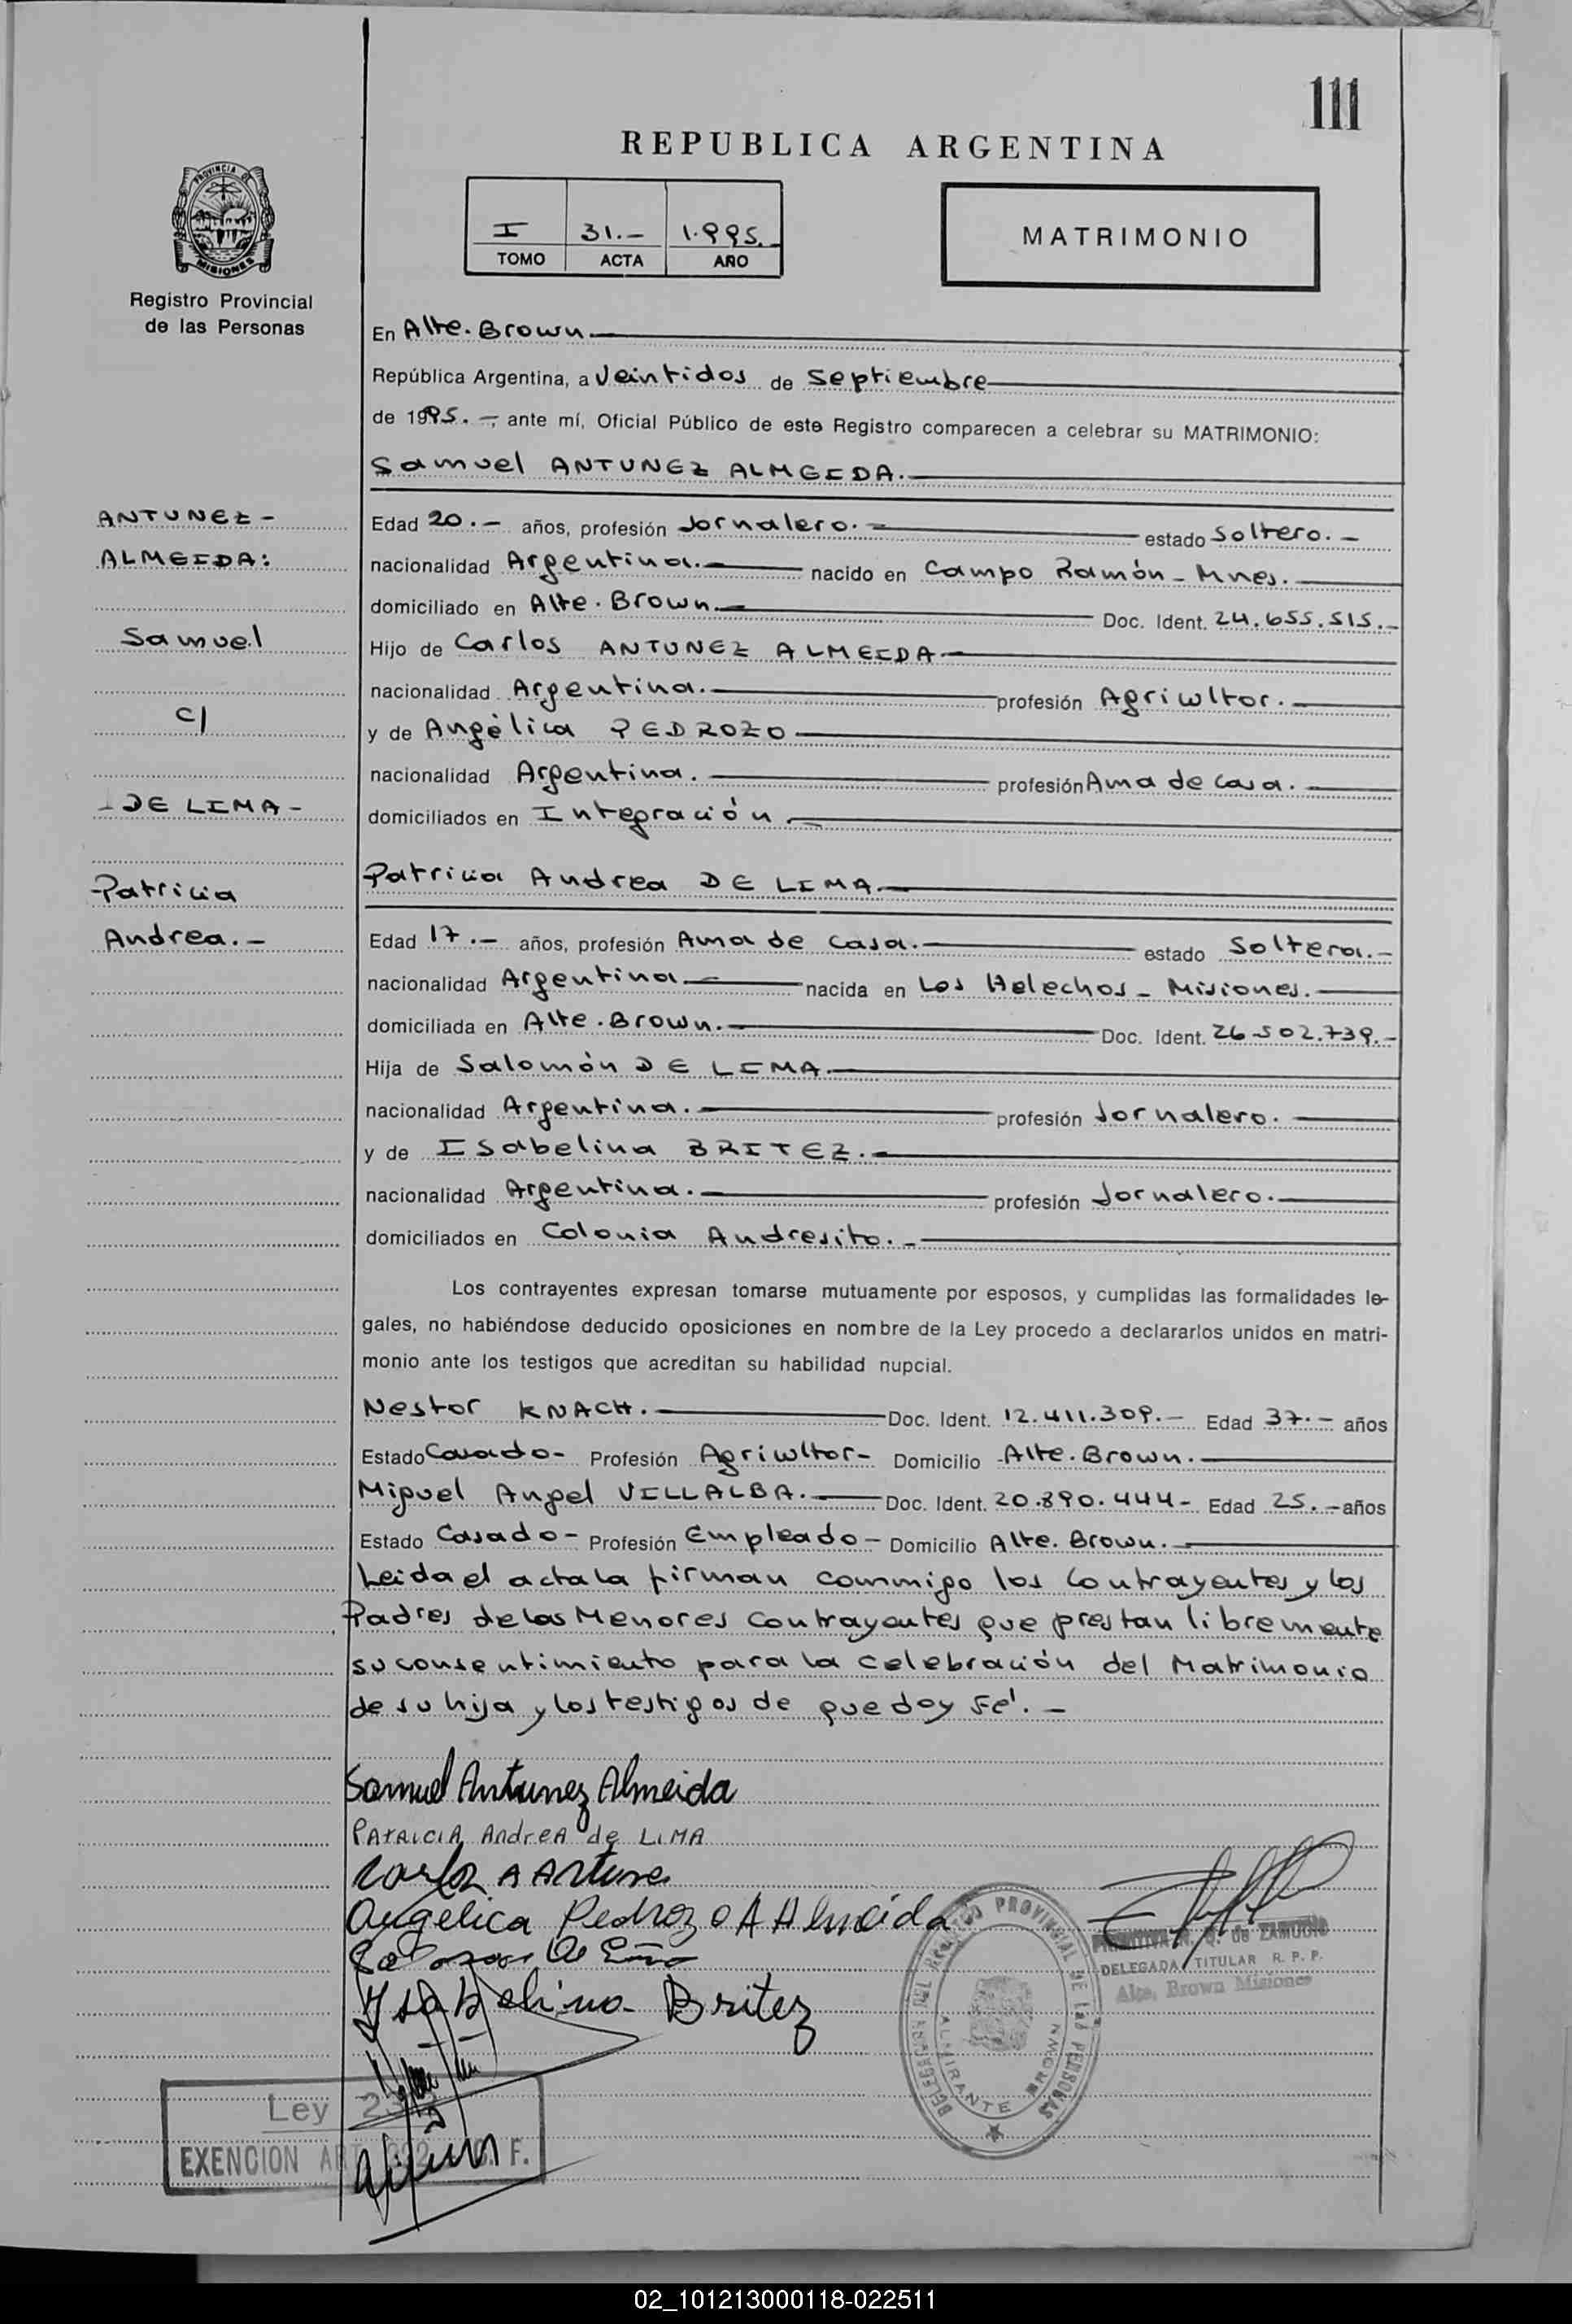 111
REPUBLICA ARGENTINA
PROVINCIA D
MISIONES
Registro Provincial
de las Personas
I 31.- 1.995.-
TOMO ACTA AÑO
MATRIMONIO
En Alte. Brown.
República Argentina, a Veintidos de Septiembre
de 1995.-, ante mí, Oficial Público de este Registro comparecen a celebrar su MATRIMONIO:
Samuel ANTUNEZ ALMEIDA.
ANTUNEZ-
ALMEIDA:
Samuel
c/
DE LIMA-
Patricia
Andrea.-
Edad 20.- años, profesión Jornalero.- estado Soltero.-
nacionalidad Argentina. nacido en Campo Ramón-Mnes.
domiciliado en Alte. Brown. Doc. Ident. 24.655.515.-
Hijo de Carlos ANTUNEZ ALMEIDA.
nacionalidad Argentina. profesión Agricultor.
y de Angélica PEDROZO
nacionalidad Argentina. profesión Ama de casa.
domiciliados en Integración.
Patricia Andrea DE LIMA.
Edad 17.- años, profesión Ama de casa. estado Soltera.-
nacionalidad Argentina. nacida en Los Helechos-Misiones.
domiciliada en Alte. Brown. Doc. Ident. 26.502.739.-
Hija de Salomón DE LIMA.
nacionalidad Argentina. profesión Jornalero.
y de Isabelina BRITEZ.
nacionalidad Argentina. profesión Jornalero.
domiciliados en Colonia Andresito.-
Los contrayentes expresan tomarse mutuamente por esposos, y cumplidas las formalidades le-
gales, no habiéndose deducido oposiciones en nombre de la Ley procedo a declararlos unidos en matri-
monio ante los testigos que acreditan su habilidad nupcial.
Nestor KNACH. Doc. Ident. 12.411.309.- Edad 37.- años
Estado Casado- Profesión Agricultor- Domicilio Alte. Brown.
Miguel Angel VILLALBA. Doc. Ident. 20.890.444- Edad 25.- años
Estado Casado- Profesión Empleado- Domicilio Alte. Brown.
Leida el acta la firman commigo los Contrayentes y los
Padres de los Menores Contrayentes que prestan libremente
su consentimiento para la celebración del Matrimonio
de su hija y los testigos de que doy Fé.-
Samuel Antunez Almeida
PATRICIA Andrea de LIMA
Carlos A Antune
Angelica Pedrozo A Almeida
Isabelina Britez
DELEGACION DEL REGISTRO PROVINCIAL DE las PERSONAS
ALMIRANTE BROWN
de ZAMUDIO
DELEGADA TITULAR R. P. P.
Alte. Brown Misiones
Ley
EXENCION F.
02_101213000118-022511